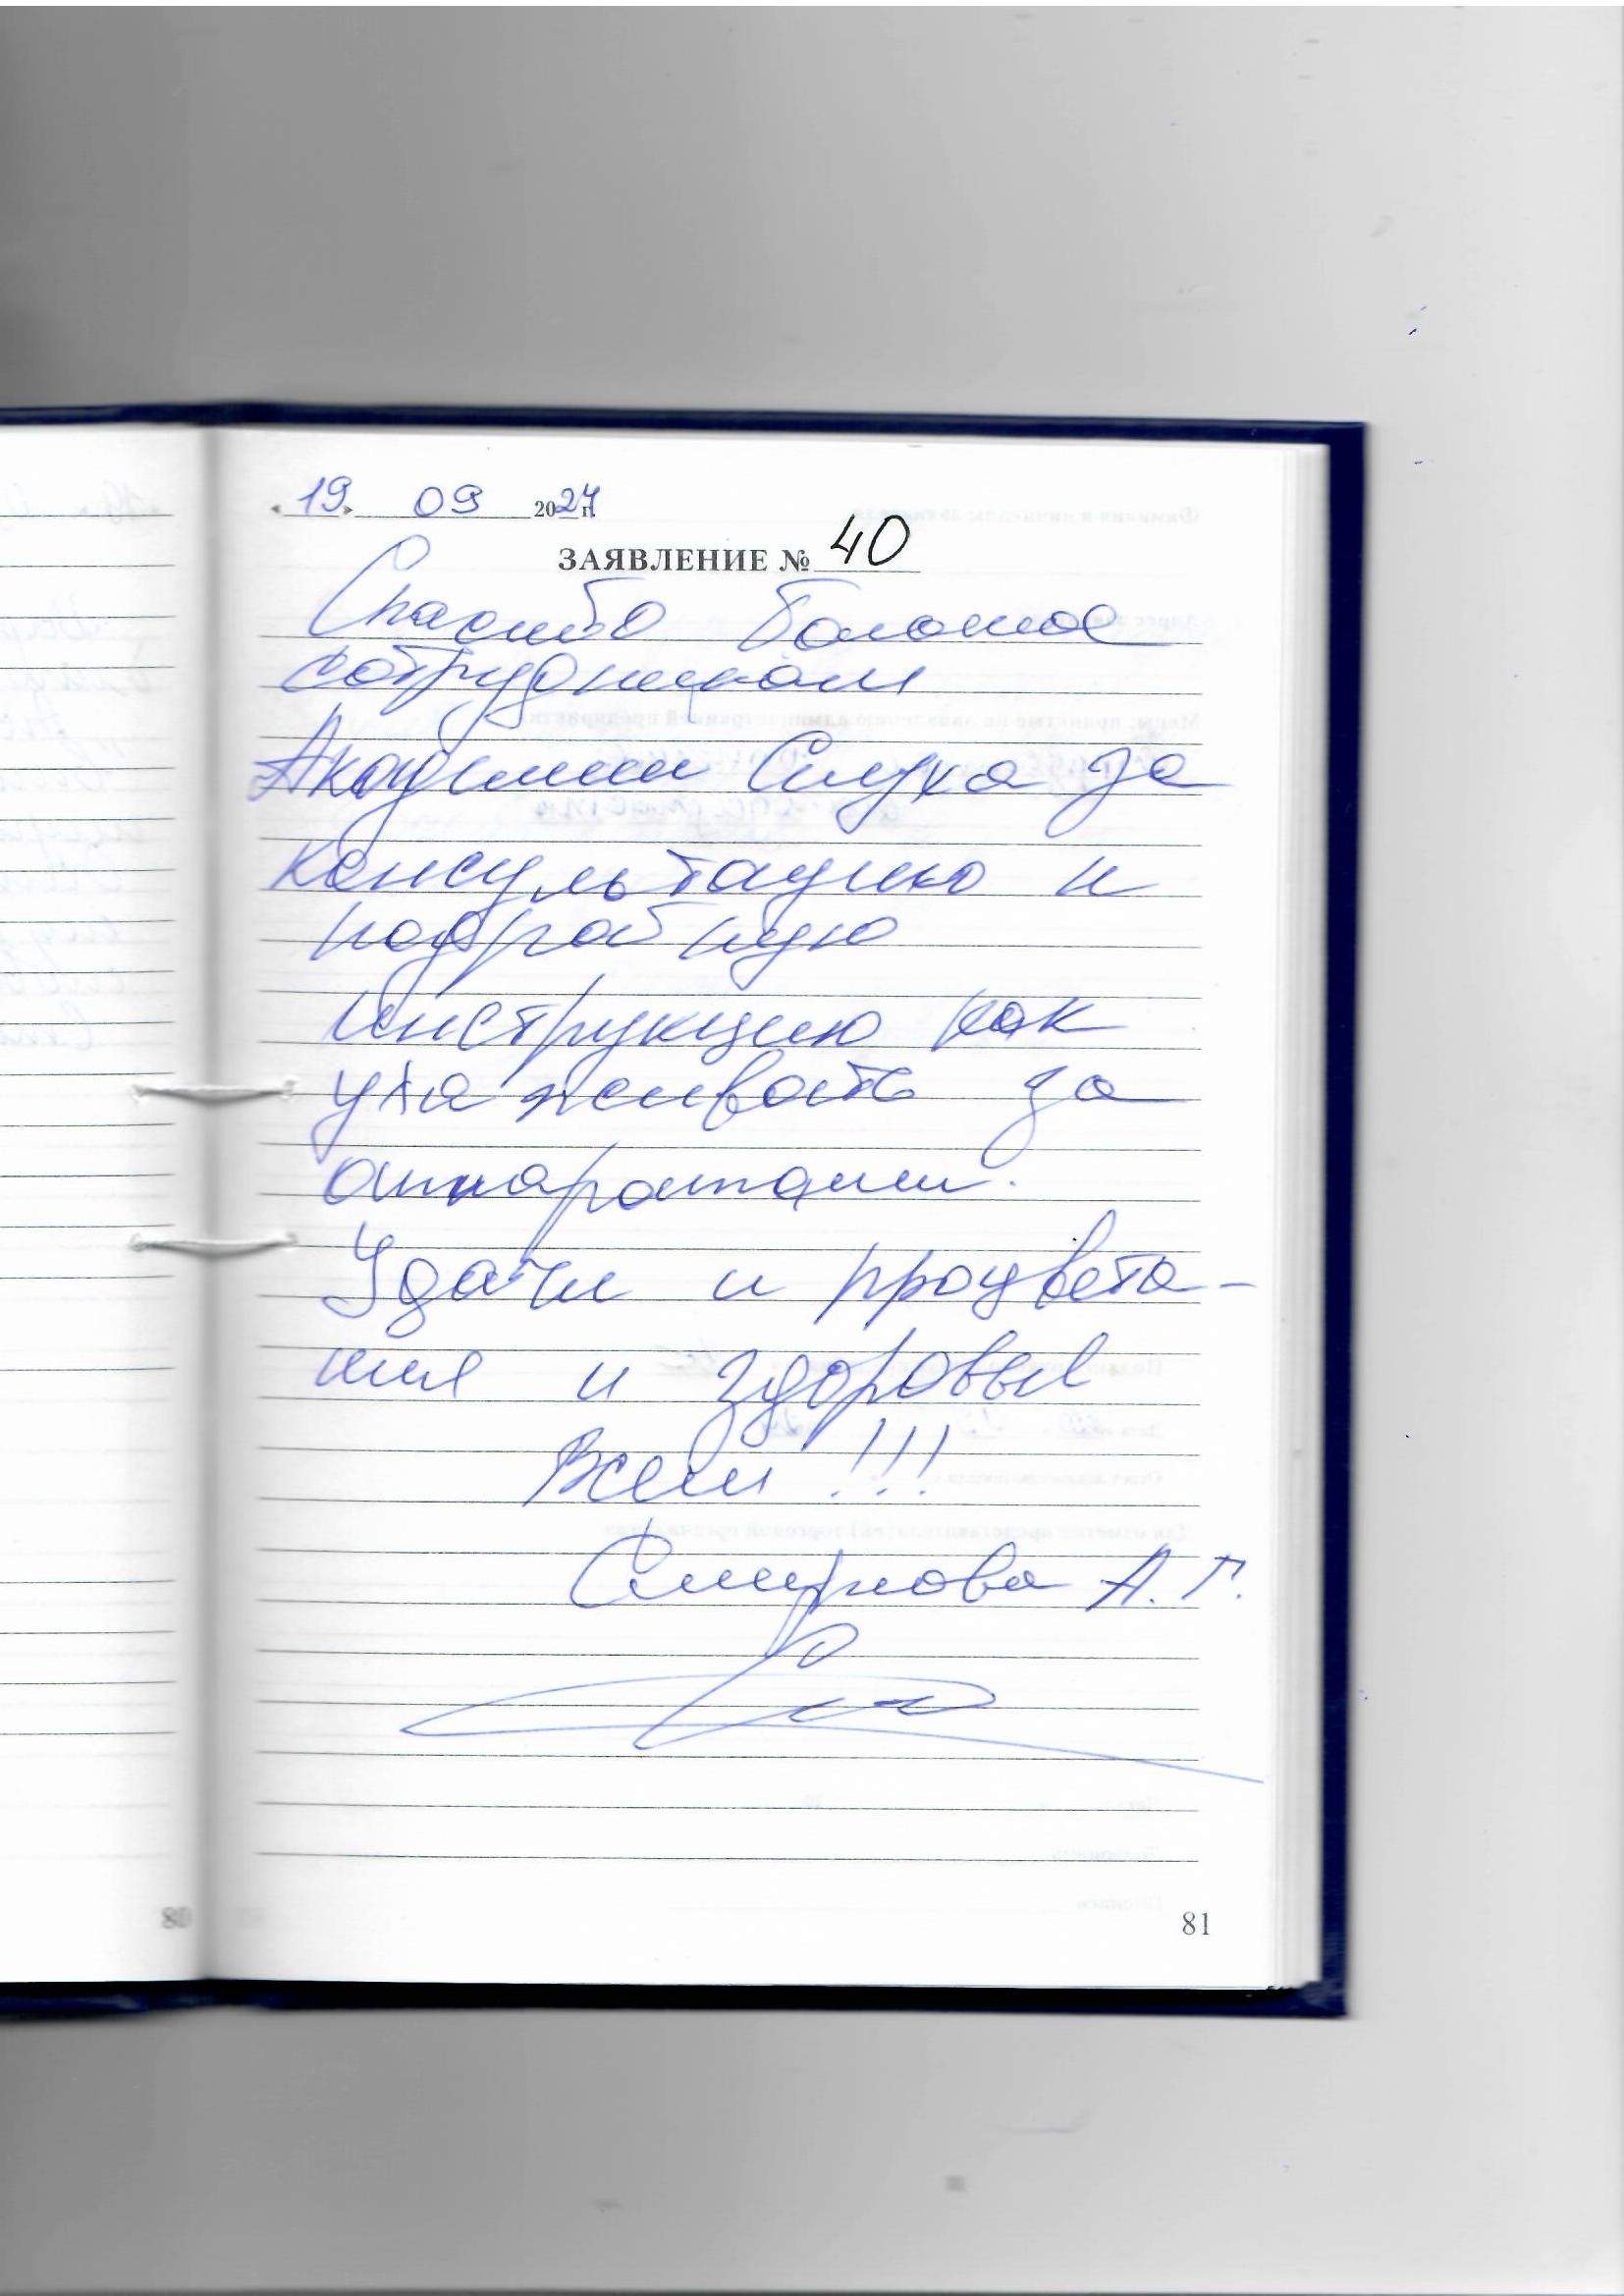 «19» 09 2024 г.
ЗАЯВЛЕНИЕ № 40
Спасибо большое
сотрудникам
Академии Слуха за
консультацию и
подробную
инструкцию как
ухаживать за
аппаратами.
Удачи и процвета-
ния и здоровья
всем!!!
Смирнова А.Г.
80
81